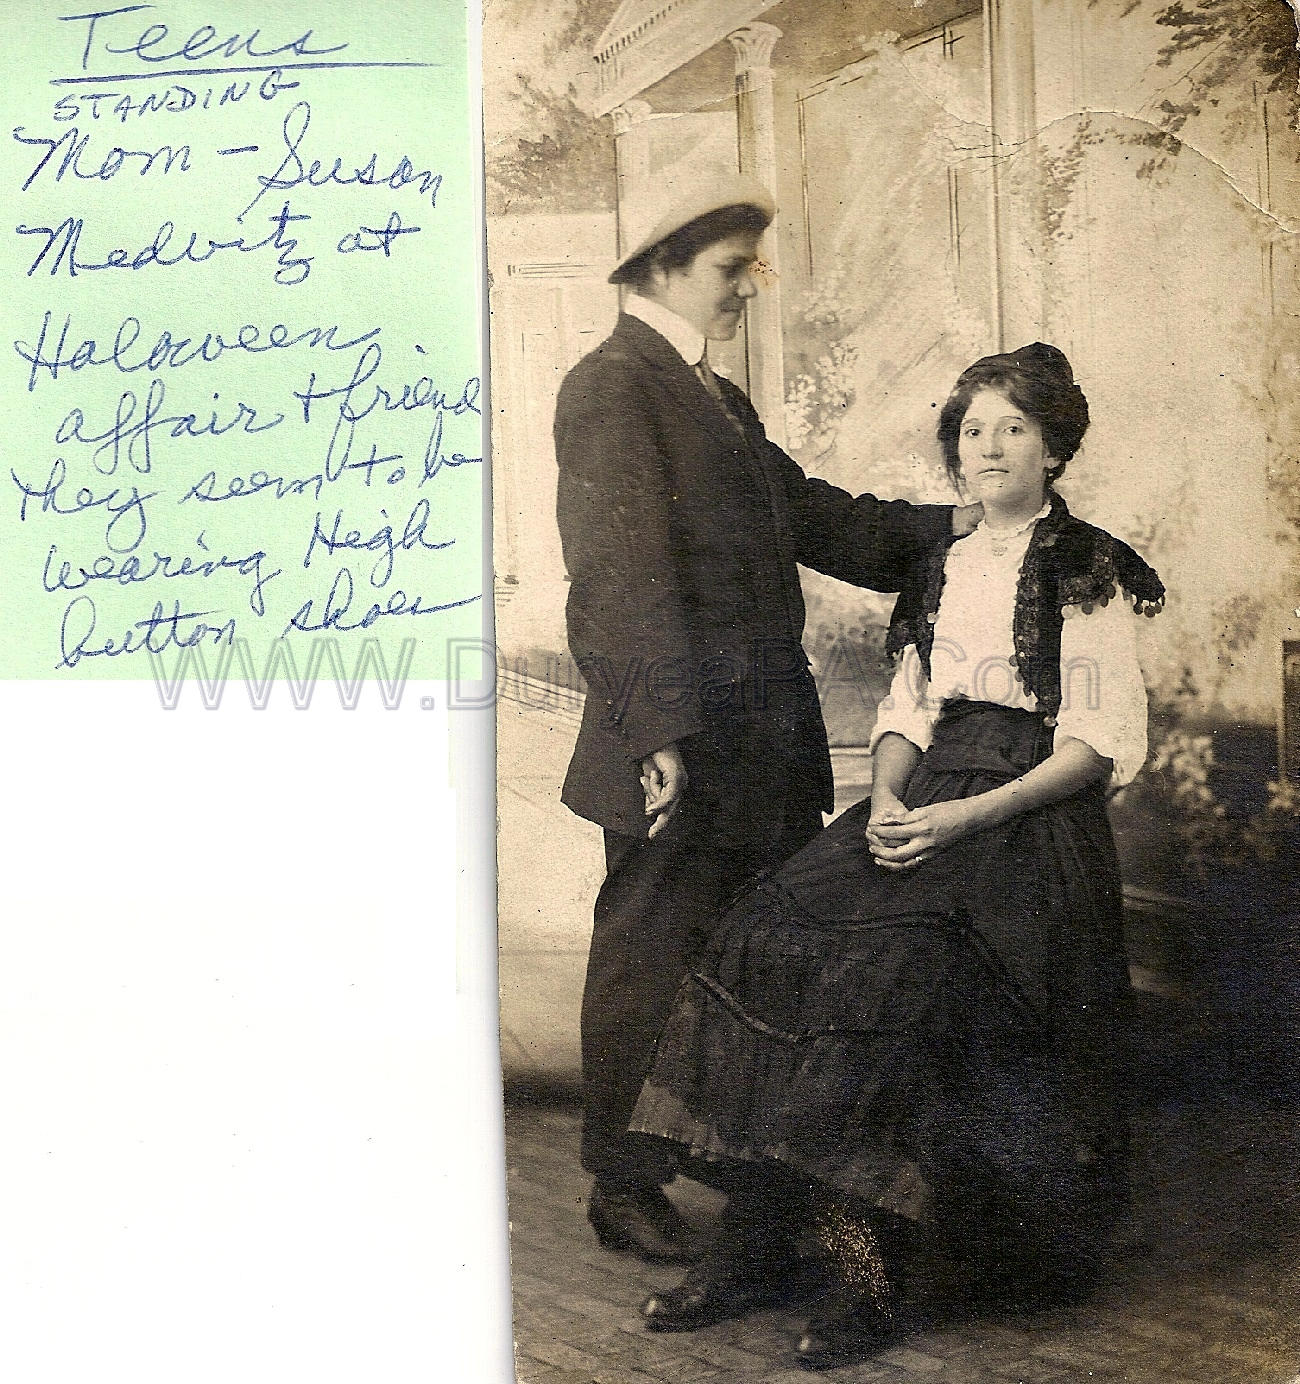 Teens
STANDING
Mom - Susan
Medvitz at
Haloween
affair + friend
they seem to be
wearing High
button shoes
WWW.DuryeaPA.Com